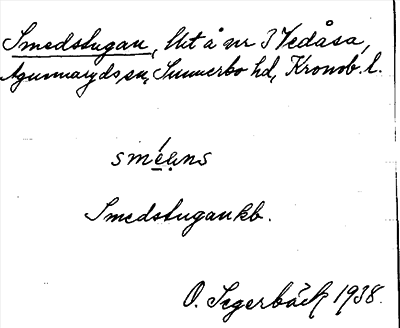 Smedstugan, Utå nr 3 Vedåsa,
Agunnaryds sn, Sunnerbo hd, Kronob. l.
sméuns
Smedstugan kb.
O. Segerbäck 1938.